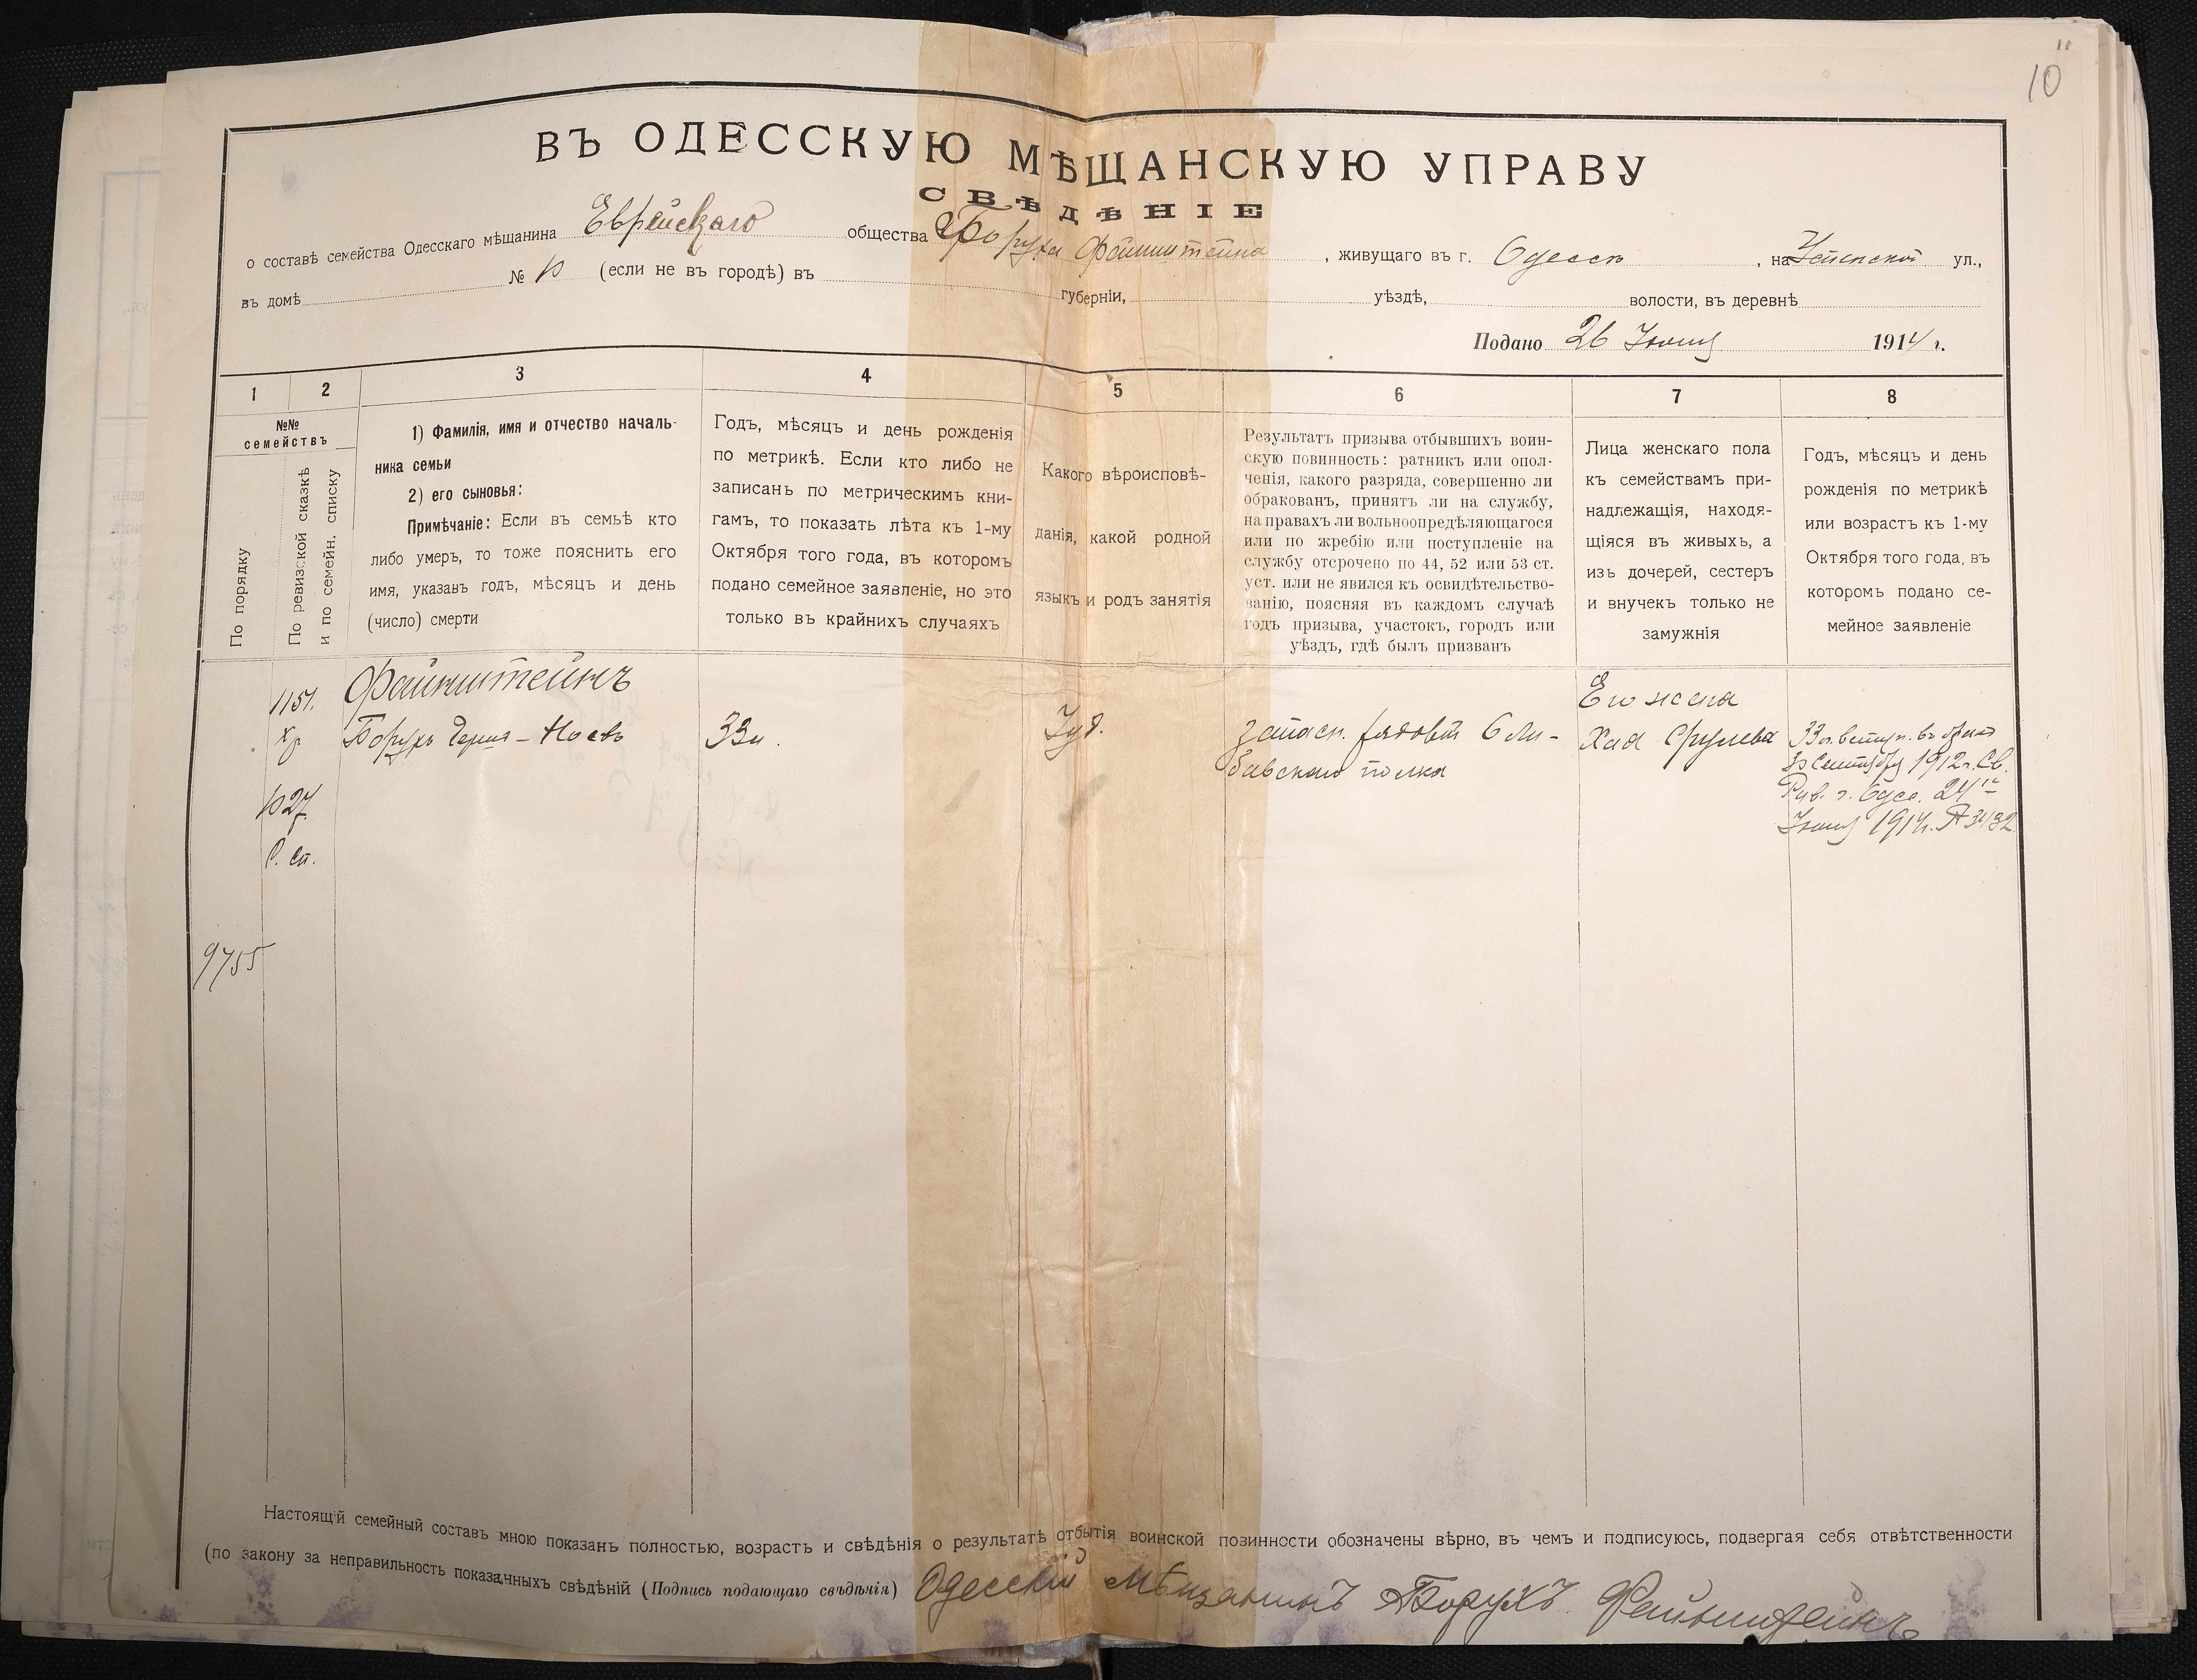 10
ВЪ ОДЕССКУЮ МѢЩАНСКУЮ УПРАВУ
СВѢДѢНІЕ
о составѣ семейства Одесскаго мѣщанина Еврейскаго общества Боруха Файнштейна, живущаго въ г. Одессѣ, на Успенской ул.,
въ домѣ № 10 (если не въ городѣ) въ губерніи, уѣздѣ, волости, въ деревнѣ
Подано 26 Іюня 1914 г.
1
2
3
4
5
6
7
8
№№
семействъ
По порядку
По ревизской сказкѣ
и по семейн. списку
1) Фамилія, имя и отчество началь-
ника семьи
2) его сыновья:
Примѣчаніе: Если въ семьѣ кто
либо умеръ, то тоже пояснить его
имя, указавъ годъ, мѣсяцъ и день
(число) смерти
Годъ, мѣсяцъ и день рожденія
по метрикѣ. Если кто либо не
записанъ по метрическимъ кни-
гамъ, то показать лѣта къ 1-му
Октября того года, въ которомъ
подано семейное заявленіе, но это
только въ крайнихъ случаяхъ
Какого вѣроисповѣ-
данія, какой родной
языкъ и родъ занятія
Результатъ призыва отбывшихъ воин-
скую повинность: ратникъ или опол-
ченія, какого разряда, совершенно ли
обракованъ, принятъ ли на службу,
на правахъ ли вольноопредѣляющагося
или по жребію или поступленіе на
службу отсрочено по 44, 52 или 53 ст.
уст. или не явился къ освидѣтельство-
ванію, поясняя въ каждомъ случаѣ
годъ призыва, участокъ, городъ или
уѣздъ, гдѣ былъ призванъ
Лица женскаго пола
къ семействамъ при-
надлежащія, находя-
щіяся въ живыхъ, а
изъ дочерей, сестеръ
и внучекъ только не
замужнія
Годъ, мѣсяцъ и день
рожденія по метрикѣ
или возрастъ къ 1-му
Октября того года, въ
которомъ подано се-
мейное заявленіе
1151.
1027.
С. сп.
9755
Файнштейнъ
Борухъ Герш-Ноевъ
33 л.
Іуд.
запасн. рядовой 6 Ли-
бавскаго полка
Его жена
Хая Срулева
33 л. вступ. въ бракъ
30 Сентября 1912 г. Св.
Рав. г. Одес. 24го
Іюня 1914 г. № 3432
Настоящій семейный составъ мною показанъ полностью, возрастъ и свѣдѣнія о результатѣ отбытія воинской повинности обозначены вѣрно, въ чемъ и подписуюсь, подвергая себя отвѣтственности
(по закону за неправильность показанныхъ свѣдѣній (Подпись подающаго свѣдѣнія) Одесскій Мѣщанинъ Борухъ Файнштейнъ